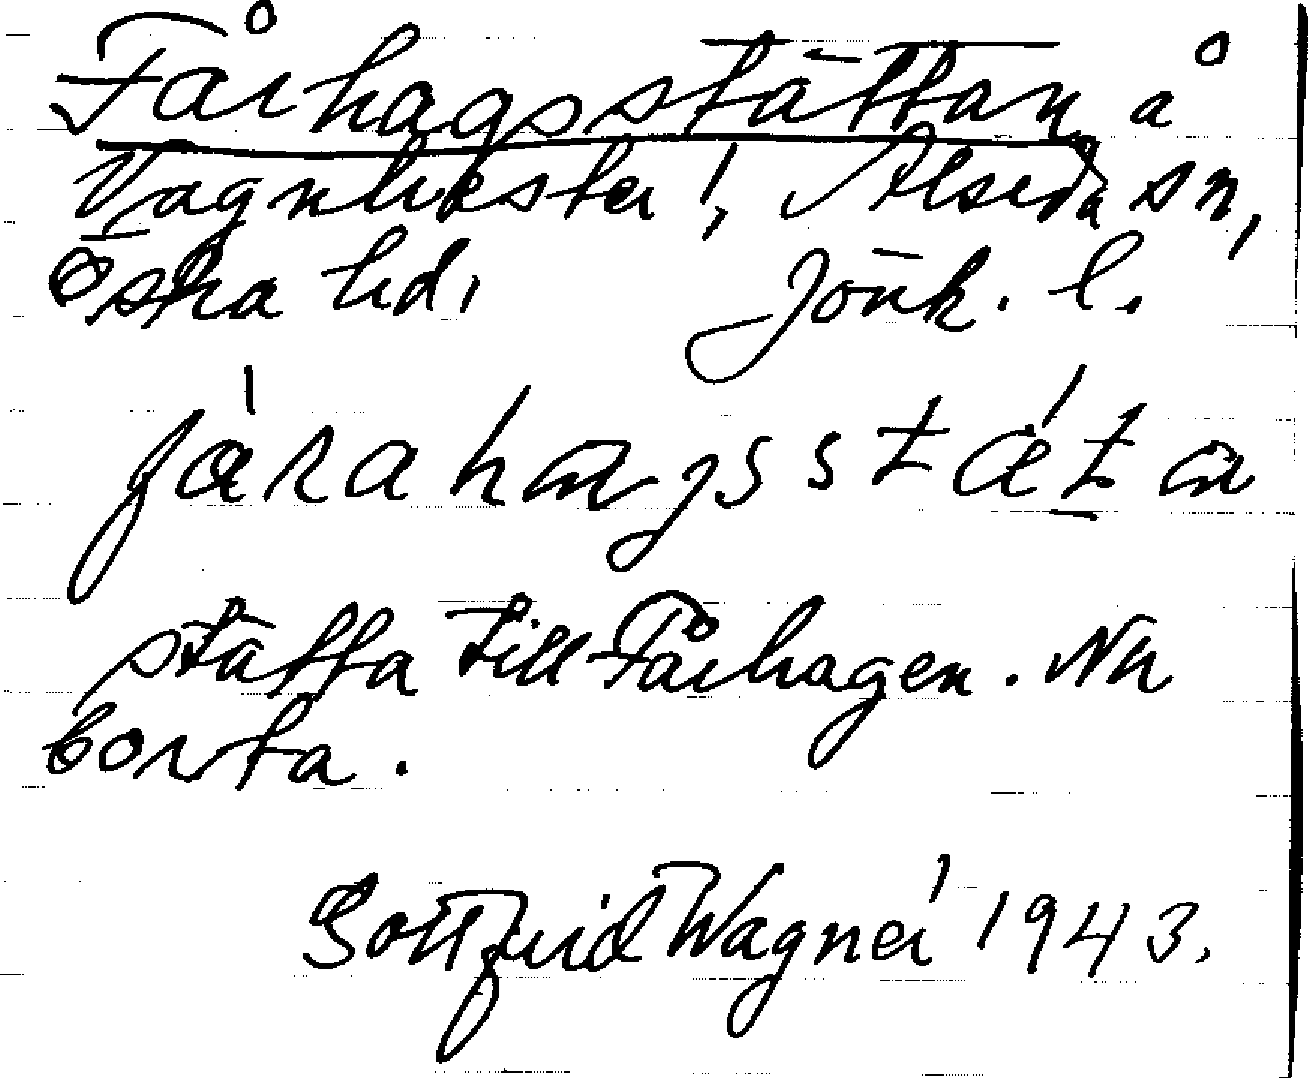 Fårhagsstättan å
Vagnhester, Alseda sn,
Östra hd, Jönk. l.
fárahagsstǽtan
stätta till Fårhagen. Nu
borta.
Gottfrid Wagnér 1943.